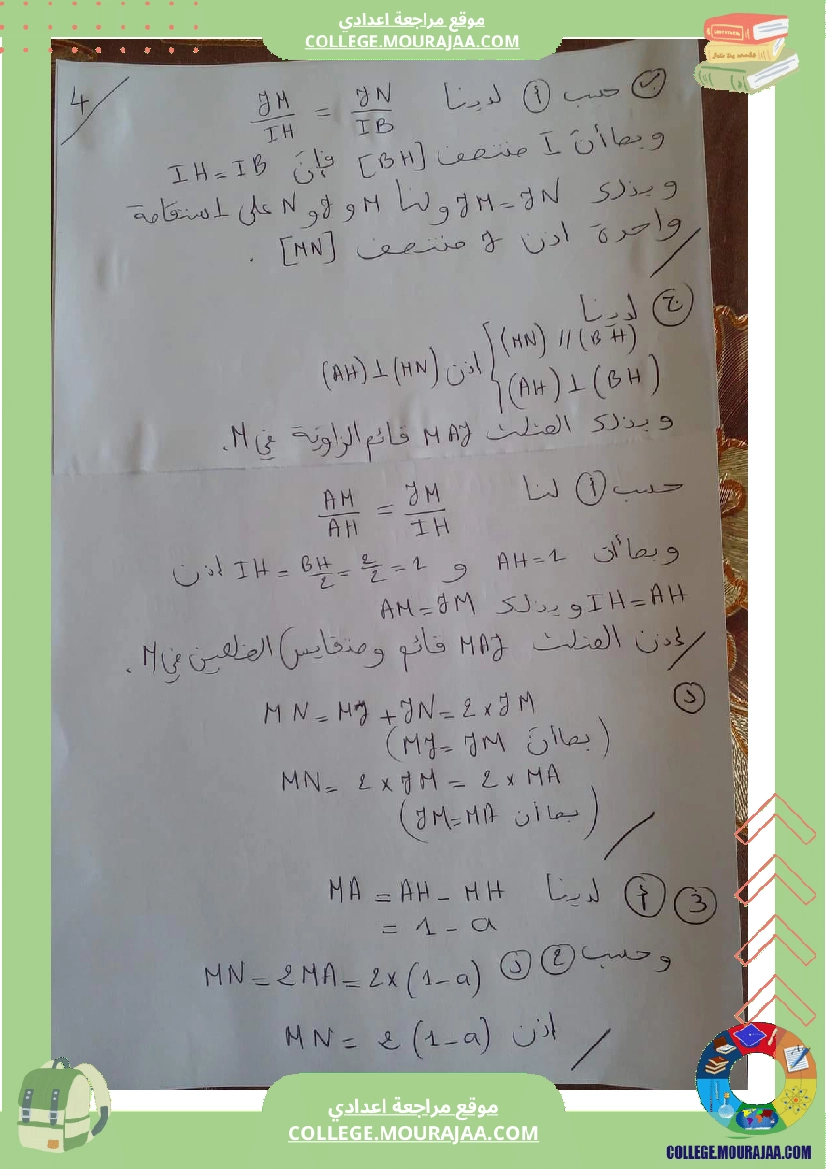 موقع مراجعة اعدادي
COLLEGE.MOURAJAA.COM
4
ب) حسب أ) لدينا JM/IH = JN/IB
وبما أن I منتصف [BH] فإن IH = IB
وبذلك JM = JN ولنا M و J و N على استقامة
واحدة اذن J منتصف [MN] .
ج) لدينا
{ (MN) // (BH)
(AH) ⊥ (BH) اذن (AH) ⊥ (MN)
وبذلك المثلث MAJ قائم الزاوية في M.
حسب أ) لنا AM/AH = JM/IH
وبما أن AH = 1 و IH = BH/2 = 2/2 = 1 اذن
IH = AH وبذلك AM = JM
إذن المثلث MAJ قائم ومتقايس الضلعين في M.
د)
MN = MJ + JN = 2 x JM
(بما أن MJ = JM)
MN = 2 x JM = 2 x MA
(بما أن JM = MA)
3) أ) لدينا MA = AH - MH
= 1 - a
وحسب 2) د) MN = 2MA = 2x(1-a)
اذن MN = 2(1-a)
موقع مراجعة اعدادي
COLLEGE.MOURAJAA.COM
COLLEGE.MOURAJAA.COM